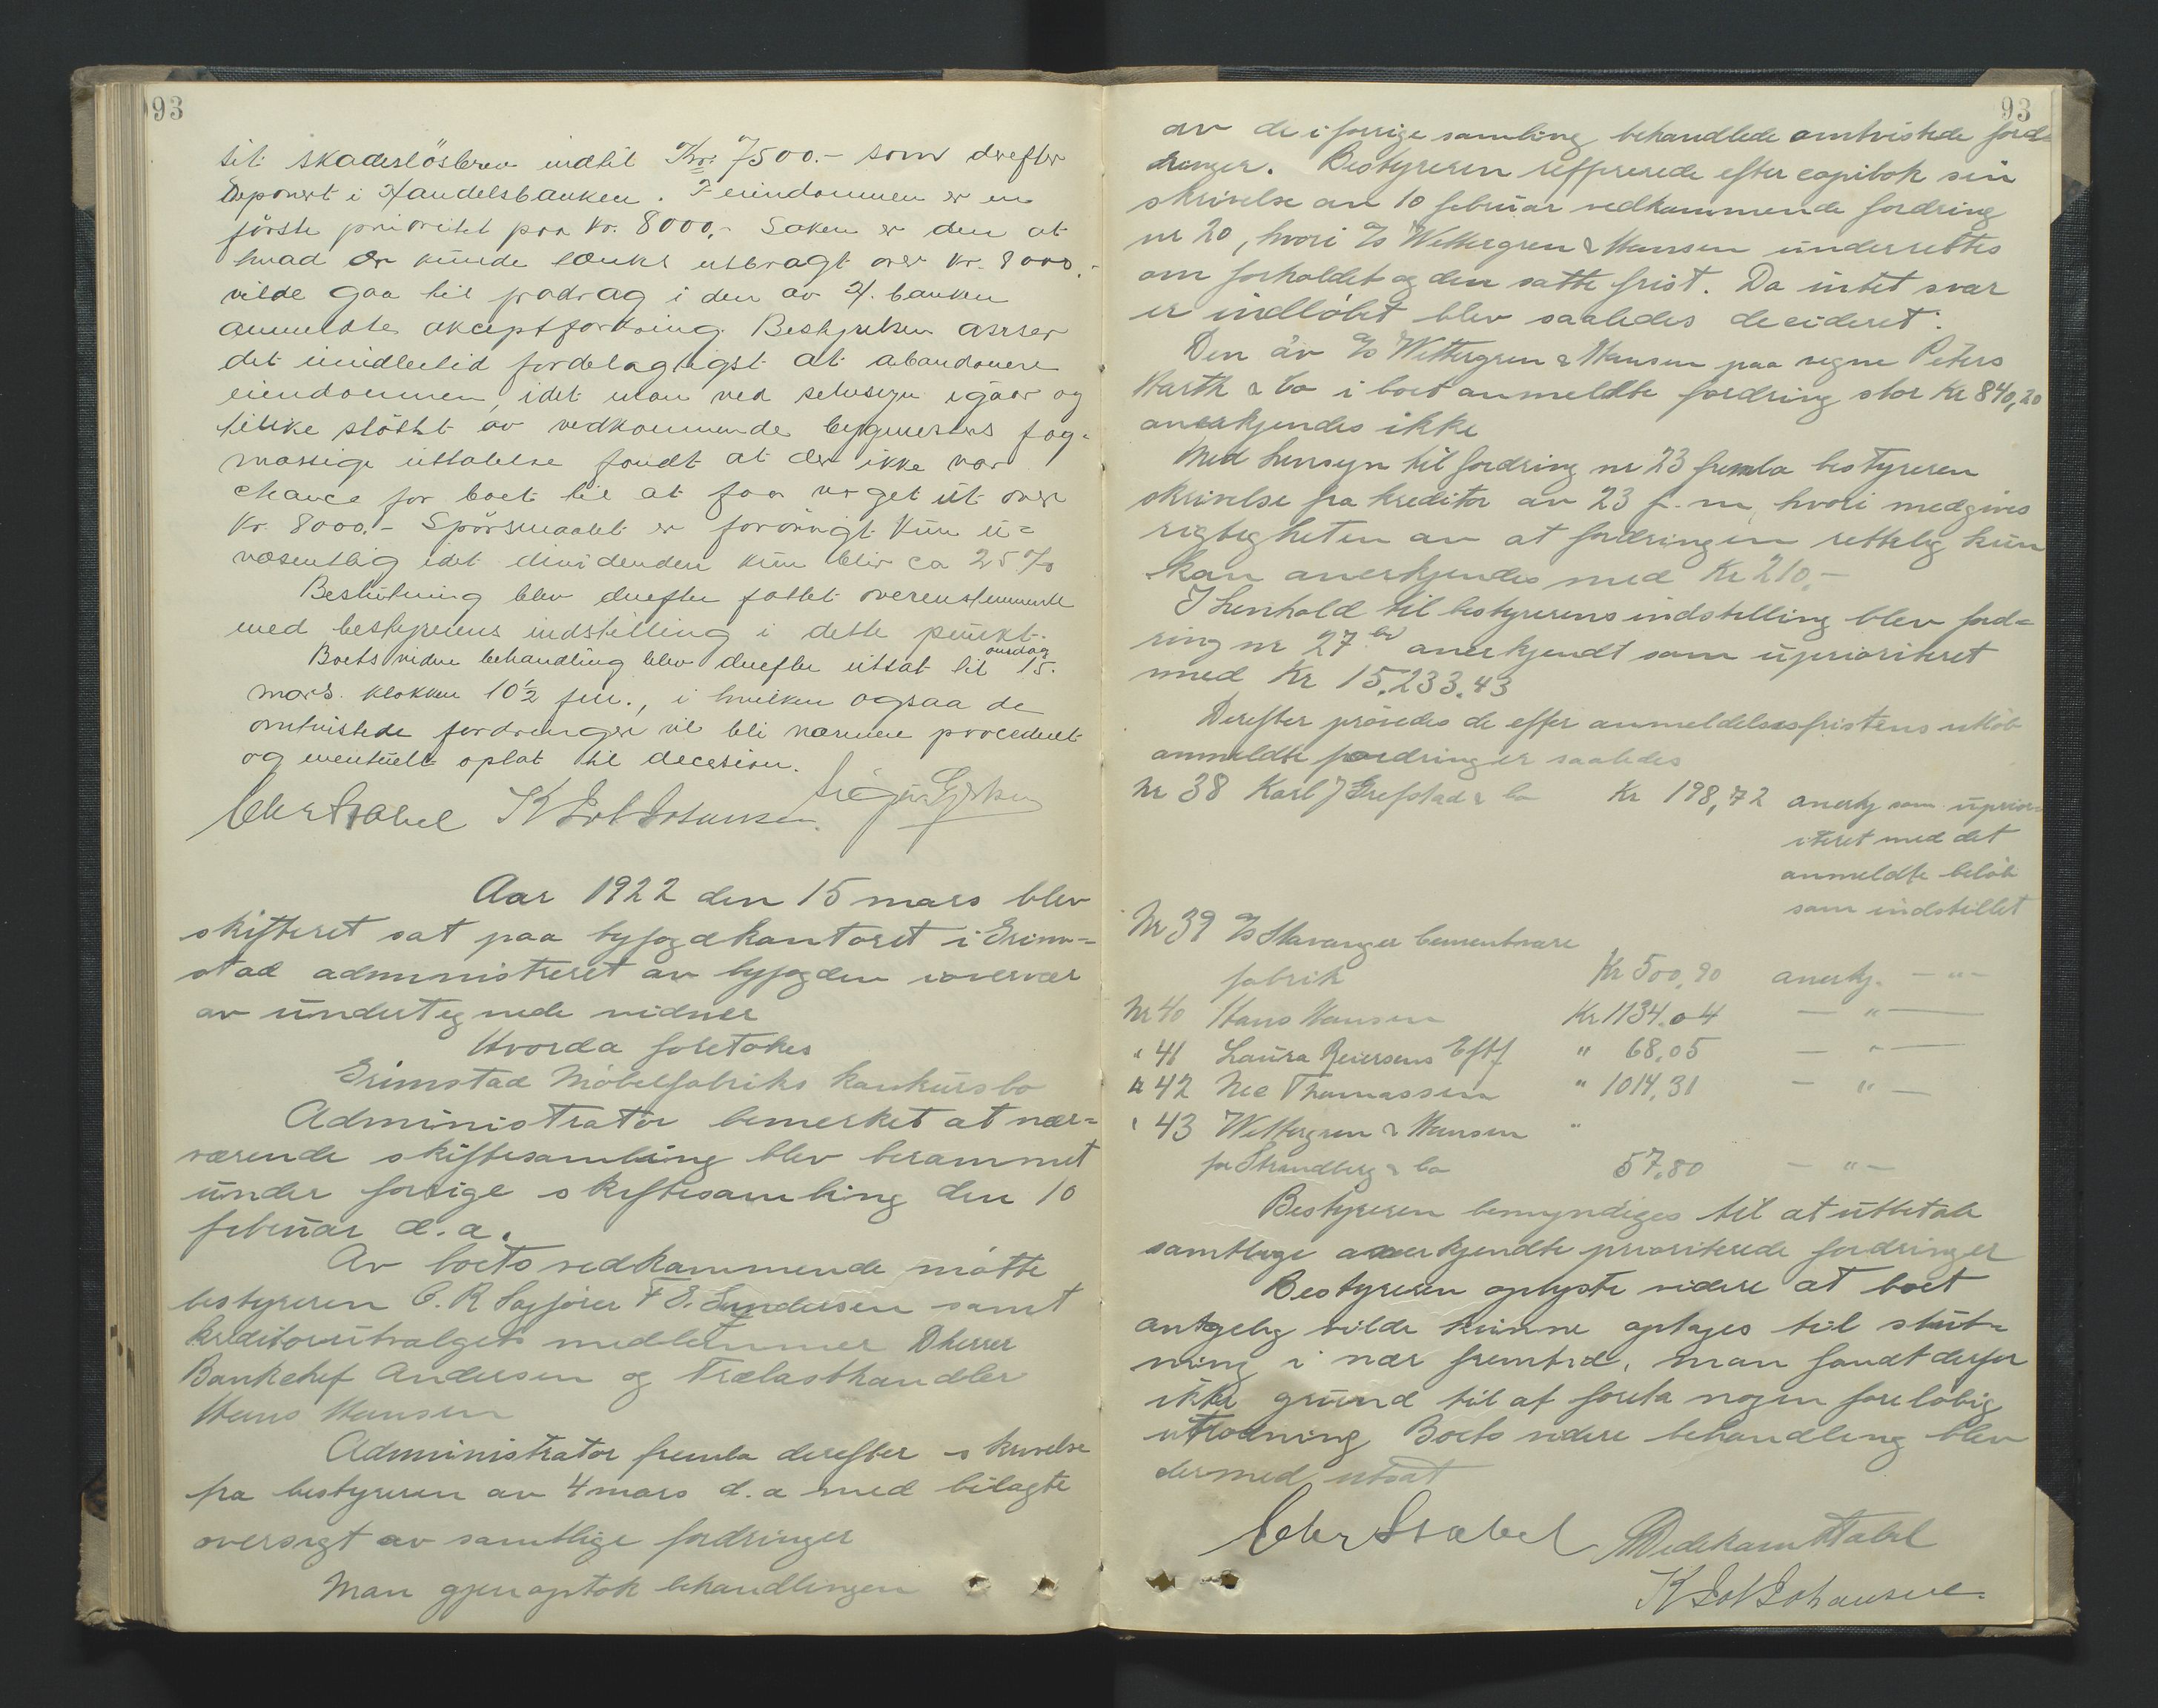 93
til skadeslösbrev indtil Kr. 7500.- som derefter
deponert i Handelsbanken. I eiendommen er en
förste prioritet paa Kr. 8000,- Saken er den at
hvad der kunde tænkes utbragt over kr. 8000.-
vilde gaa til fradrag i den av H. banken
anmeldte akceptfordring. Bestyrelsen anser
det imidlertid fordelagtigst at abandonere
eiendommen, idet man ved selvsyn igaar og
tillike stöttet av vedkommende bygmesters fag-
mæssige uttalelse fandt at der ikke var
chance for boet til at faa noget ut over
Kr. 8000.- Spörsmaalet er forövrigt kun u-
væsentlig idet dividenden kun blir ca 25 %
Beslutning blev derefter fattet overensstemmende
med bestyrerens indstilling i dette punkt.
Boets videre behandling blev derefter utsat til onsdag 15.
mars. klokken 10½ fm., i hvilken ogsaa de
omtvistede fordringer vil bli nærmere procedert
og eventuelt optat til decision.
Chr Stabel K Lol Johansen.
Aar 1922 den 15 mars blev
skifteret sat paa byfogdkontoret i Grim-
stad administreret av byfogden i overvær
av undertegnede vidner
Hvorda foretokes
Grimstad Möbelfabriks konkursbo
Administrator bemerket at nær-
værende skiftesamling blev berammet
under forrige skiftesamling den 10
februar d.a.
Av boets vedkommende mötte
bestyreren O. R Sagförer F E. Gundersen samt
kreditorutvalgets medlemmer Dherrer
Bankchef Andersen og Trælasthandler
Hans Hansen
Administrator fremla derefter skrivelse
fra bestyreren av 4 mars d.a med bilagte
oversigt av samtlige fordringer
Man gjenoptok behandlingen
93
av de i forrige samling behandlede omtvistede ford-
ringer. Bestyreren refererede efter copibok sin
skrivelse av 10 februar vedkommende fordring
nr 20, hvori A/s Wettergren & Hansen underrettes
om forholdet og den satte frist. Da intet svar
er indlöbet blev saaledes decideret:
Den av A/s Wettergren & Hansen paa vegne Peters
Harth & Co i boet anmeldte fordring stor Kr 840,20
anerkjendes ikke
Med hensyn til fordring nr 23 fremla bestyreren
skrivelse fra kreditor av 23 f.m, hvori medgives
rigtigheten av at fordringen rettelig kun
kan anerkjendes med Kr 210.-
I henhold til bestyrerens indstilling blev ford-
ring nr 27 anerkjendt som uprioriteret
med Kr 15,233.43
Derefter prövedes de efter anmeldelsesfristens utlöb
anmeldte fordringer saaledes
Nr 38 Karl J Grefstad & Co Kr 198,72 anerkj som uprior-
iteret med det
anmeldte belöb
som indstillet
Nr 39 A/s Stavanger Cementvare
fabrik Kr 500,90 anerkj. — " —
Nr 40 Hans Hansen Kr 1134.04 — " —
" 41 Laura Reiersens Eftf " 68.05 — " —
" 42 Nic Thomassen " 1014,31 — " —
" 43 Wettergren & Hansen "
for Strandberg & Co 57.80 — " —
Bestyreren bemyndiges til at utbetale
samtlige anerkjendte prioriterede fordringer
Bestyreren oplyste videre at boet
antagelig vilde kunne optages til slut-
ning i nær fremtid, man fandt derfor
ikke grund til at foreta nogen forelöbig
utlodning Boets videre behandling blev
dermed utsat
Chr Stabel Stabel
K Lol Johansen.